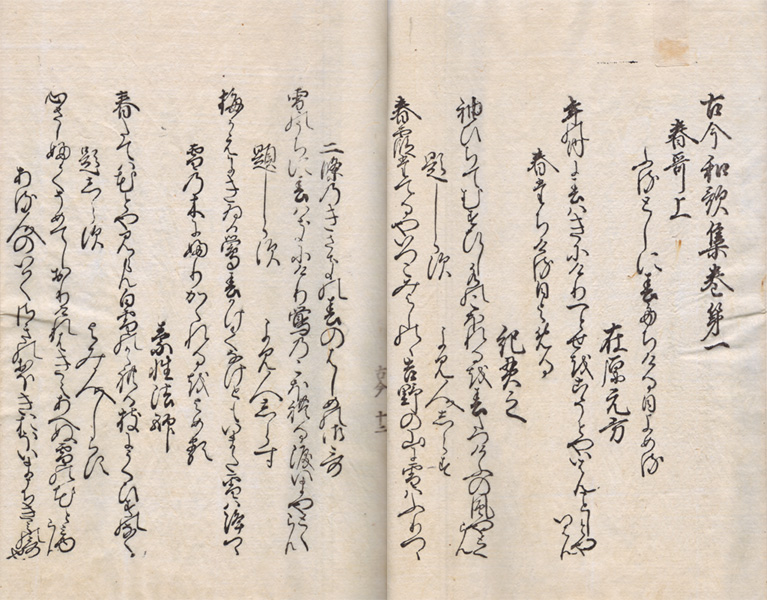 古今和歌集巻第一
春哥上
ふるとしに春たちける日よめる
在原元方
年の内に春はきにけり一とせをこそとやいはんことしとや
いはん
春たちける日よめる
紀貫之
袖ひちてむすひし水のこほれるを春立けふの風やとく
らん
題しらす
よみ人しらす
春霞たてるやいつこみよしのゝ吉野の山に雪はふりつゝ
古今 十二
二條のきさきの春のはしめの御哥
雪の内に春はきにけり鶯のこほれる涙今やとくらん
題しらす
よみ人しらす
梅かえにきゐる鶯春かけてなけともいまた雪は降つゝ
雪の木にふりかゝれるをよめる
素性法師
春たては花とや見らん白雪のかゝれる枝にうくひすの鳴
題しらす
よみ人しらす
心さしふかくそめてしおりけれはきえあへぬ雪の花とみゆ
らん
ある人のいはくさきのおほきおほいまうちきみの哥
也